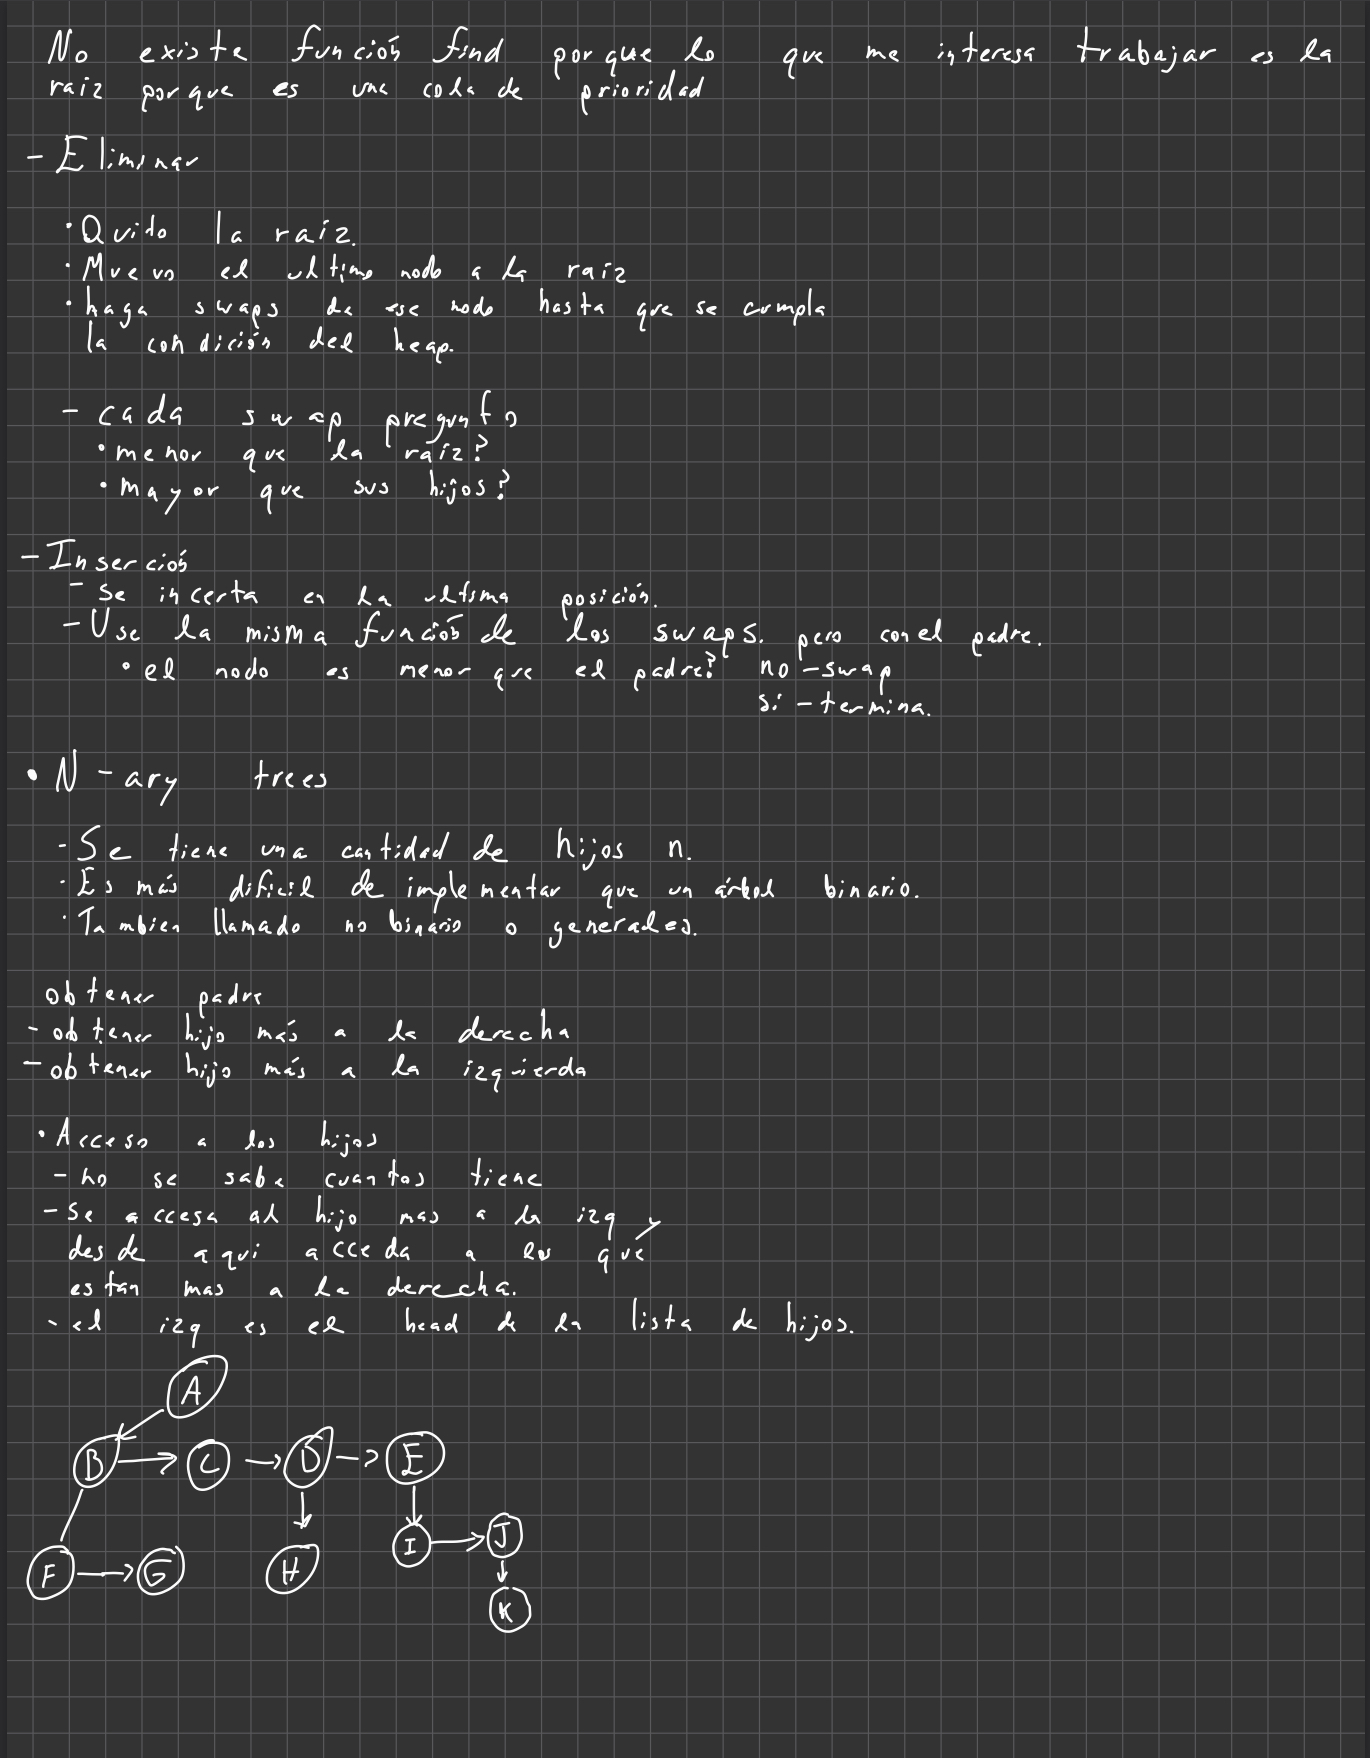 No existe función find porque lo que me interesa trabajar es la
raiz porque es una cola de prioridad
- Eliminar
· Quito la raíz.
· Muevo el ultimo nodo a la raiz
· haga swaps de ese nodo hasta que se cumpla
la condición del heap.
- cada swap pregunto
· menor que la raíz?
· mayor que sus hijos?
- Inserción
- se incerta en la ultima posición.
- Use la misma función de los swaps. pero con el padre.
· el nodo es menor que el padre? no - swap
si - termina.
• N-ary trees
- Se tiene una cantidad de hijos n.
· Es más dificil de implementar que un árbol binario.
· Tambien llamado no binario o generales.
obtener padre
- obtener hijo más a la derecha
- obtener hijo más a la izquierda
· Acceso a los hijos
- no se sabe cuantos tiene
- Se accesa al hijo mas a la izq y
desde aqui acceda a los que
estan mas a la derecha.
- el izq es el head de la lista de hijos.
A
B C D E
I J
F G H
K